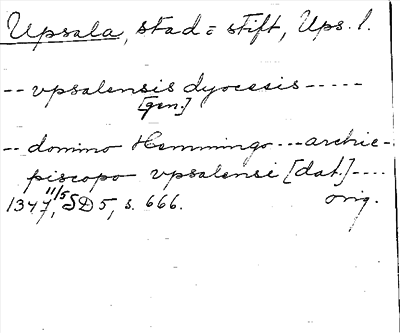 Upsala, stad = stift, Ups. l.
-- vpsalensis dyocesis -----
[gen.]
-- domino Hemmingo --- archie-
piscopo vpsalensi [dat.] ----
1347 11/5, SD 5, s. 666. orig.